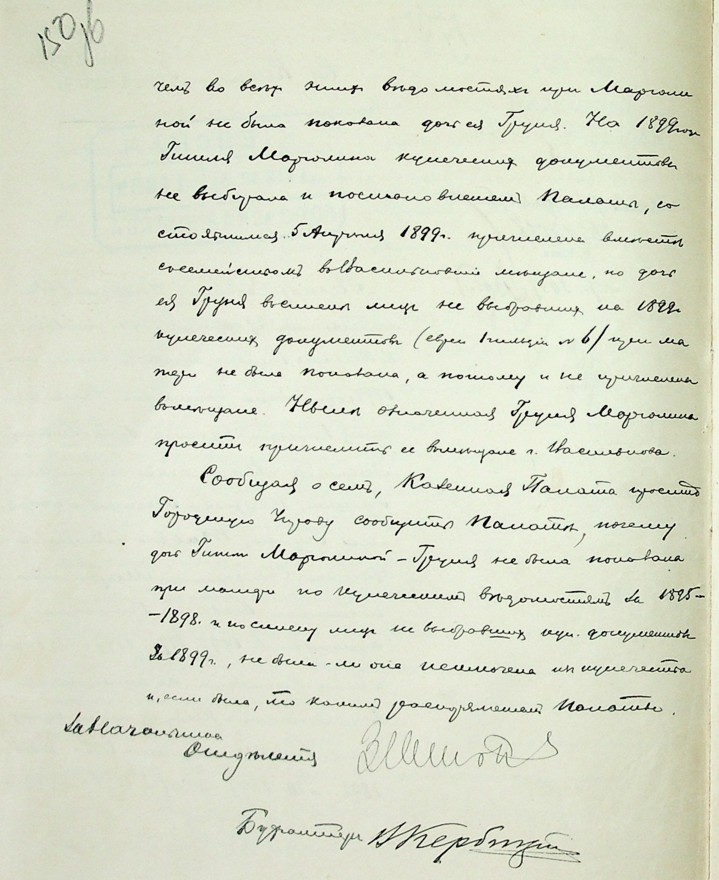 150 об
чемъ во всѣхъ этихъ вѣдомостяхъ при Марголи
ной не была показана дочь ея Груня. На 1899 годъ
Гитля Марголина купеческихъ документовъ
не выбирала и постановленіемъ Палаты, со
стоявшимся 5 Апрѣля 1899 г. причислена вмѣстѣ
съ семействомъ въ Васильковскіе мѣщане, но дочь
ея Груня въ спискѣ лицъ не выбравшихъ на 1899 г.
купеческихъ документовъ (евреи 1 гильдіи № 6) при ма
тери не была показана, а потому и не причислена
въ мѣщане. Нынѣ означенная Груня Марголина
проситъ причислить ее въ мѣщане г. Василькова.
Сообщая о семъ, Казенная Палата проситъ
Городскую Управу сообщить Палатѣ, почему
дочь Гитли Марголиной – Груня не была показана
при матери по купеческимъ вѣдомостямъ за 1895–
–1898 г. и по списку лицъ не выбравшихъ куп. документовъ
за 1899 г., не была-ли она исключена изъ купечества
и, если была, то какимъ распоряженіемъ Палаты.
За Начальника
Отдѣленія
Бухгалтеръ